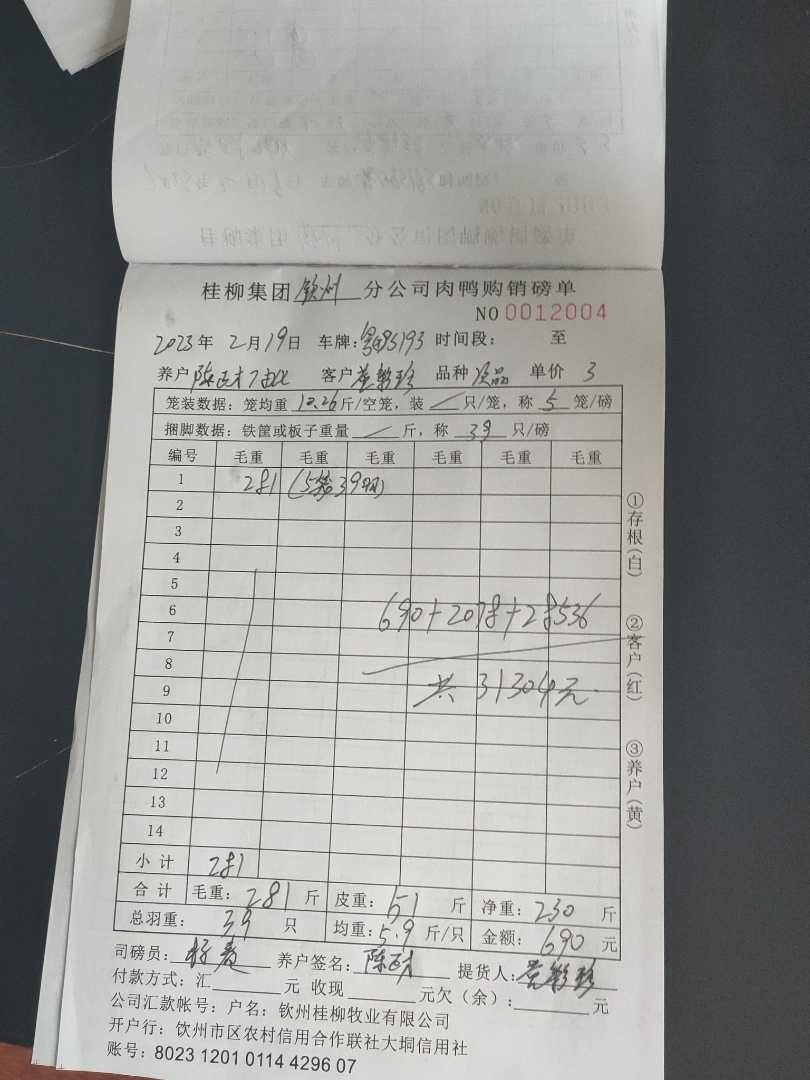 桂柳集团 钦州 分公司肉鸭购销磅单
NO 0012004
2023年 2月19日 车牌: 时间段: 至
养户 客户 品种 次品 单价 3
笼装数据: 笼均重 10.26 斤/空笼, 装 / 只/笼, 称 5 笼/磅
捆脚数据: 铁筐或板子重量 / 斤, 称 39 只/磅
编号 毛重 毛重 毛重 毛重 毛重 毛重
1 281 (5笼39羽)
2
3
4
5
6 690+2078+28536
7
8
9 共 31304元
10
11
12
13
14
小计 281
合计 毛重: 281 斤 皮重: 51 斤 净重: 230 斤
总羽重: 39 只 均重: 5.9 斤/只 金额: 690 元
司磅员: 养户签名: 提货人:
付款方式: 汇 元 收现 元欠(余): 元
公司汇款帐号: 户名: 钦州桂柳牧业有限公司
开户行: 饮州市区农村信用合作联社大垌信用社
账号: 8023 1201 0114 4296 07
①存根(白) ②客户(红) ③养户(黄)